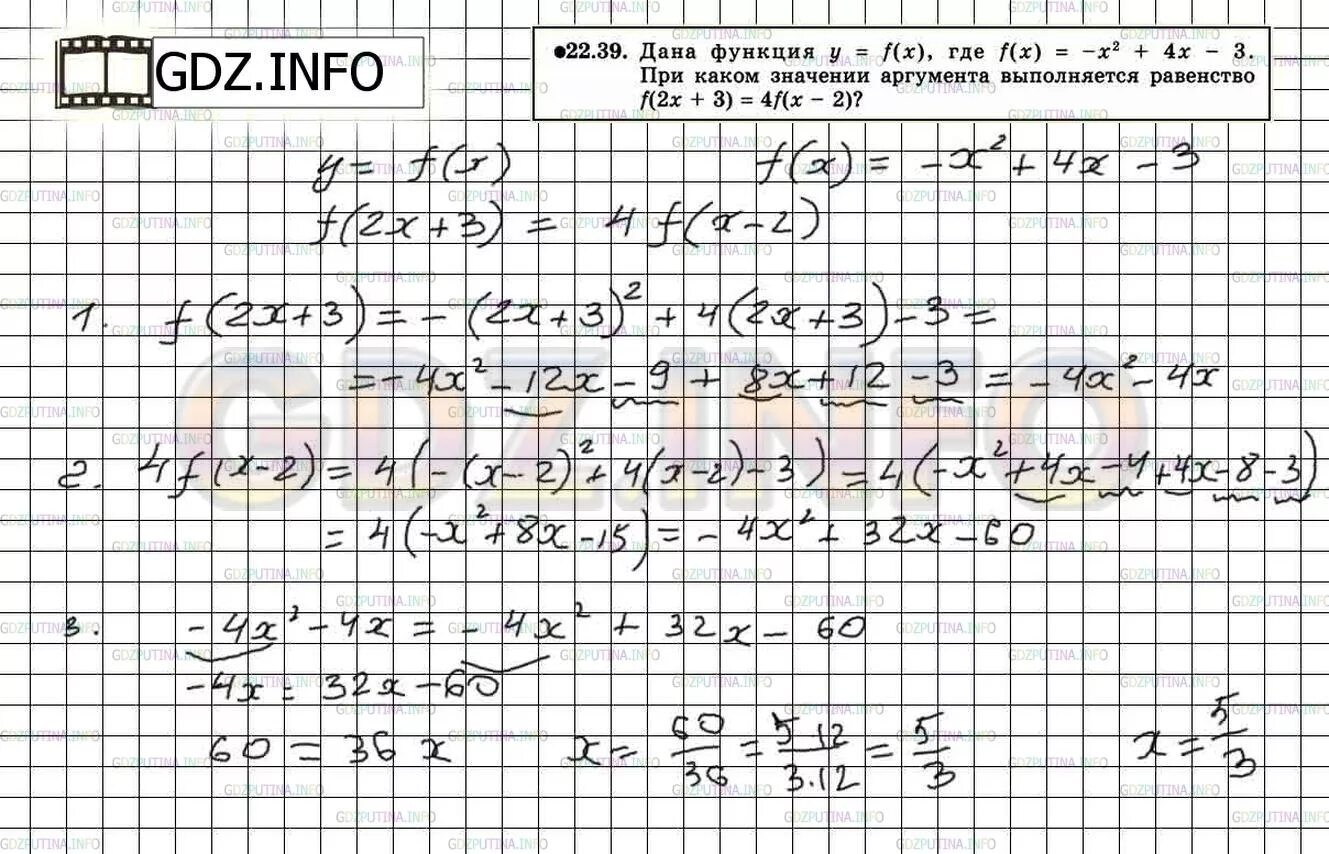 GDZ.INFO
•22.39. Дана функция y = f(x), где f(x) = −x² + 4x − 3.
При каком значении аргумента выполняется равенство
f(2x + 3) = 4f(x − 2)?
y = f(x) f(x) = −x² + 4x − 3
f(2x+3) = 4f(x−2)
1. f(2x+3) = −(2x+3)² + 4(2x+3) − 3 =
= −4x² − 12x − 9 + 8x + 12 − 3 = −4x² − 4x
2. 4f(x−2) = 4(−(x−2)² + 4(x−2) − 3) = 4(−x² + 4x − 4 + 4x − 8 − 3)
= 4(−x² + 8x − 15) = −4x² + 32x − 60
3. −4x² − 4x = −4x² + 32x − 60
−4x = 32x − 60
60 = 36x x = 60/36 = 5·12/3·12 = 5/3 x = 5/3